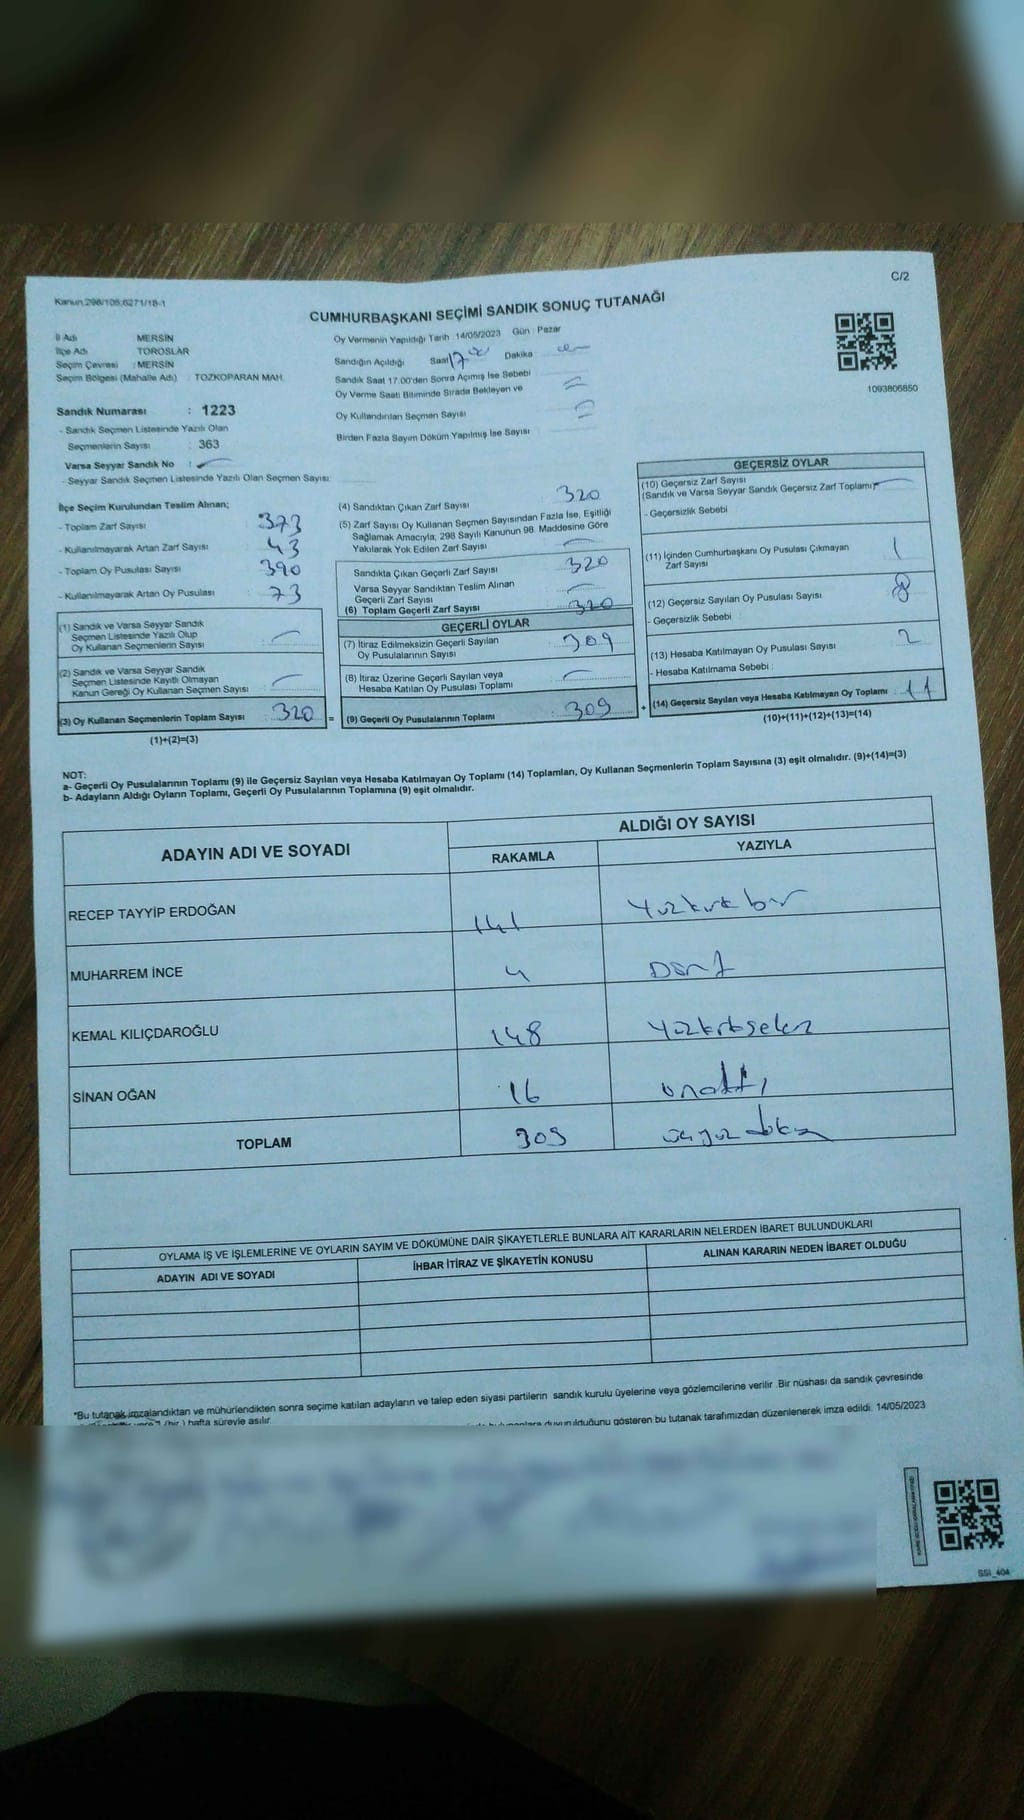 C/2
Kanun:298/105;6271/18-1
CUMHURBAŞKANI SEÇİMİ SANDIK SONUÇ TUTANAĞI
İl Adı MERSİN
İlçe Adı TOROSLAR
Seçim Çevresi : MERSİN
Seçim Bölgesi (Mahalle Adı) : TOZKOPARAN MAH.
Sandık Numarası : 1223
- Sandık Seçmen Listesinde Yazılı Olan
Seçmenlerin Sayısı : 363
Varsa Seyyar Sandık No :
- Seyyar Sandık Seçmen Listesinde Yazılı Olan Seçmen Sayısı:
Oy Vermenin Yapıldığı Tarih 14/05/2023 Gün : Pazar
Sandığın Açıldığı Saat 17 00 Dakika
Sandık Saat 17.00'den Sonra Açımış İse Sebebi
Oy Verme Saati Bitiminde Sırada Bekleyen ve
Oy Kullandırılan Seçmen Sayısı
Birden Fazla Sayım Döküm Yapılmış İse Sayısı
1093806850
İlçe Seçim Kurulundan Teslim Alınan;
- Toplam Zarf Sayısı : 373
- Kullanılmayarak Artan Zarf Sayısı : 43
- Toplam Oy Pusulası Sayısı : 390
- Kullanılmayarak Artan Oy Pusulası : 73
(1) Sandık ve Varsa Seyyar Sandık
Seçmen Listesinde Yazılı Olup
Oy Kullanan Seçmenlerin Sayısı :
(2) Sandık ve Varsa Seyyar Sandık
Seçmen Listesinde Kayıtlı Olmayan
Kanun Gereği Oy Kullanan Seçmen Sayısı :
(3) Oy Kullanan Seçmenlerin Toplam Sayısı : 320 =
(1)+(2)=(3)
(4) Sandıktan Çıkan Zarf Sayısı 320
(5) Zarf Sayısı Oy Kullanan Seçmen Sayısından Fazla İse, Eşitliği
Sağlamak Amacıyla, 298 Sayılı Kanunun 98. Maddesine Göre
Yakılarak Yok Edilen Zarf Sayısı
Sandıkta Çıkan Geçerli Zarf Sayısı 320
Varsa Seyyar Sandıktan Teslim Alınan
Geçerli Zarf Sayısı
(6) Toplam Geçerli Zarf Sayısı 320
GEÇERLİ OYLAR
(7) İtiraz Edilmeksizin Geçerli Sayılan
Oy Pusulalarının Sayısı 309
(8) İtiraz Üzerine Geçerli Sayılan veya
Hesaba Katılan Oy Pusulası Toplamı
(9) Geçerli Oy Pusulalarının Toplamı 309 +
GEÇERSİZ OYLAR
(10) Geçersiz Zarf Sayısı
(Sandık ve Varsa Seyyar Sandık Geçersiz Zarf Toplamı)
- Geçersizlik Sebebi
(11) İçinden Cumhurbaşkanı Oy Pusulası Çıkmayan
Zarf Sayısı 1
(12) Geçersiz Sayılan Oy Pusulası Sayısı 8
- Geçersizlik Sebebi :
(13) Hesaba Katılmayan Oy Pusulası Sayısı 2
- Hesaba Katılmama Sebebi :
(14) Geçersiz Sayılan veya Hesaba Katılmayan Oy Toplamı : 11
(10)+(11)+(12)+(13)=(14)
NOT:
a- Geçerli Oy Pusulalarının Toplamı (9) ile Geçersiz Sayılan veya Hesaba Katılmayan Oy Toplamı (14) Toplamları, Oy Kullanan Seçmenlerin Toplam Sayısına (3) eşit olmalıdır. (9)+(14)=(3)
b- Adayların Aldığı Oyların Toplamı, Geçerli Oy Pusulalarının Toplamına (9) eşit olmalıdır.
ADAYIN ADI VE SOYADI
ALDIĞI OY SAYISI
RAKAMLA YAZIYLA
RECEP TAYYİP ERDOĞAN 141 Yüzkırk bir
MUHARREM İNCE 4 Dört
KEMAL KILIÇDAROĞLU 148 Yüzkırksekiz
SİNAN OĞAN 16 onaltı
TOPLAM 309 üçyüz dokuz
OYLAMA İŞ VE İŞLEMLERİNE VE OYLARIN SAYIM VE DÖKÜMÜNE DAİR ŞİKAYETLERLE BUNLARA AİT KARARLARIN NELERDEN İBARET BULUNDUKLARI
ADAYIN ADI VE SOYADI İHBAR İTİRAZ VE ŞİKAYETİN KONUSU ALINAN KARARIN NEDEN İBARET OLDUĞU
*Bu tutanak imzalandıktan ve mühürlendikten sonra seçime katılan adayların ve talep eden siyasi partilerin sandık kurulu üyelerine veya gözlemcilerine verilir .Bir nüshası da sandık çevresinde
1 (bir ) hafta süreyle asılır.
duyurulduğunu gösteren bu tutanak tarafımızdan düzenlenerek imza edildi. 14/05/2023
SSI_404